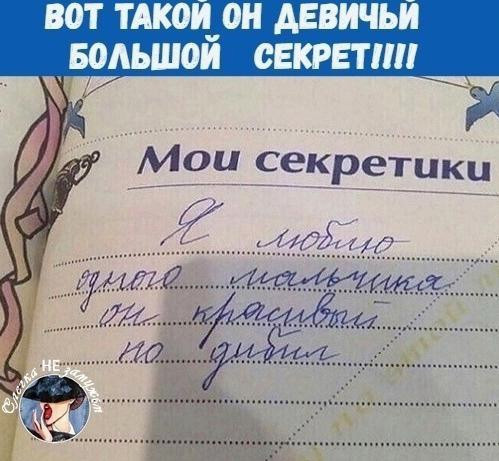 ВОТ ТАКОЙ ОН ДЕВИЧЬЙ
БОЛЬШОЙ СЕКРЕТ!!!!
Мои секретики
Я люблю
одного мальчика
он красивый
но дибил
Слегка НЕ замужем